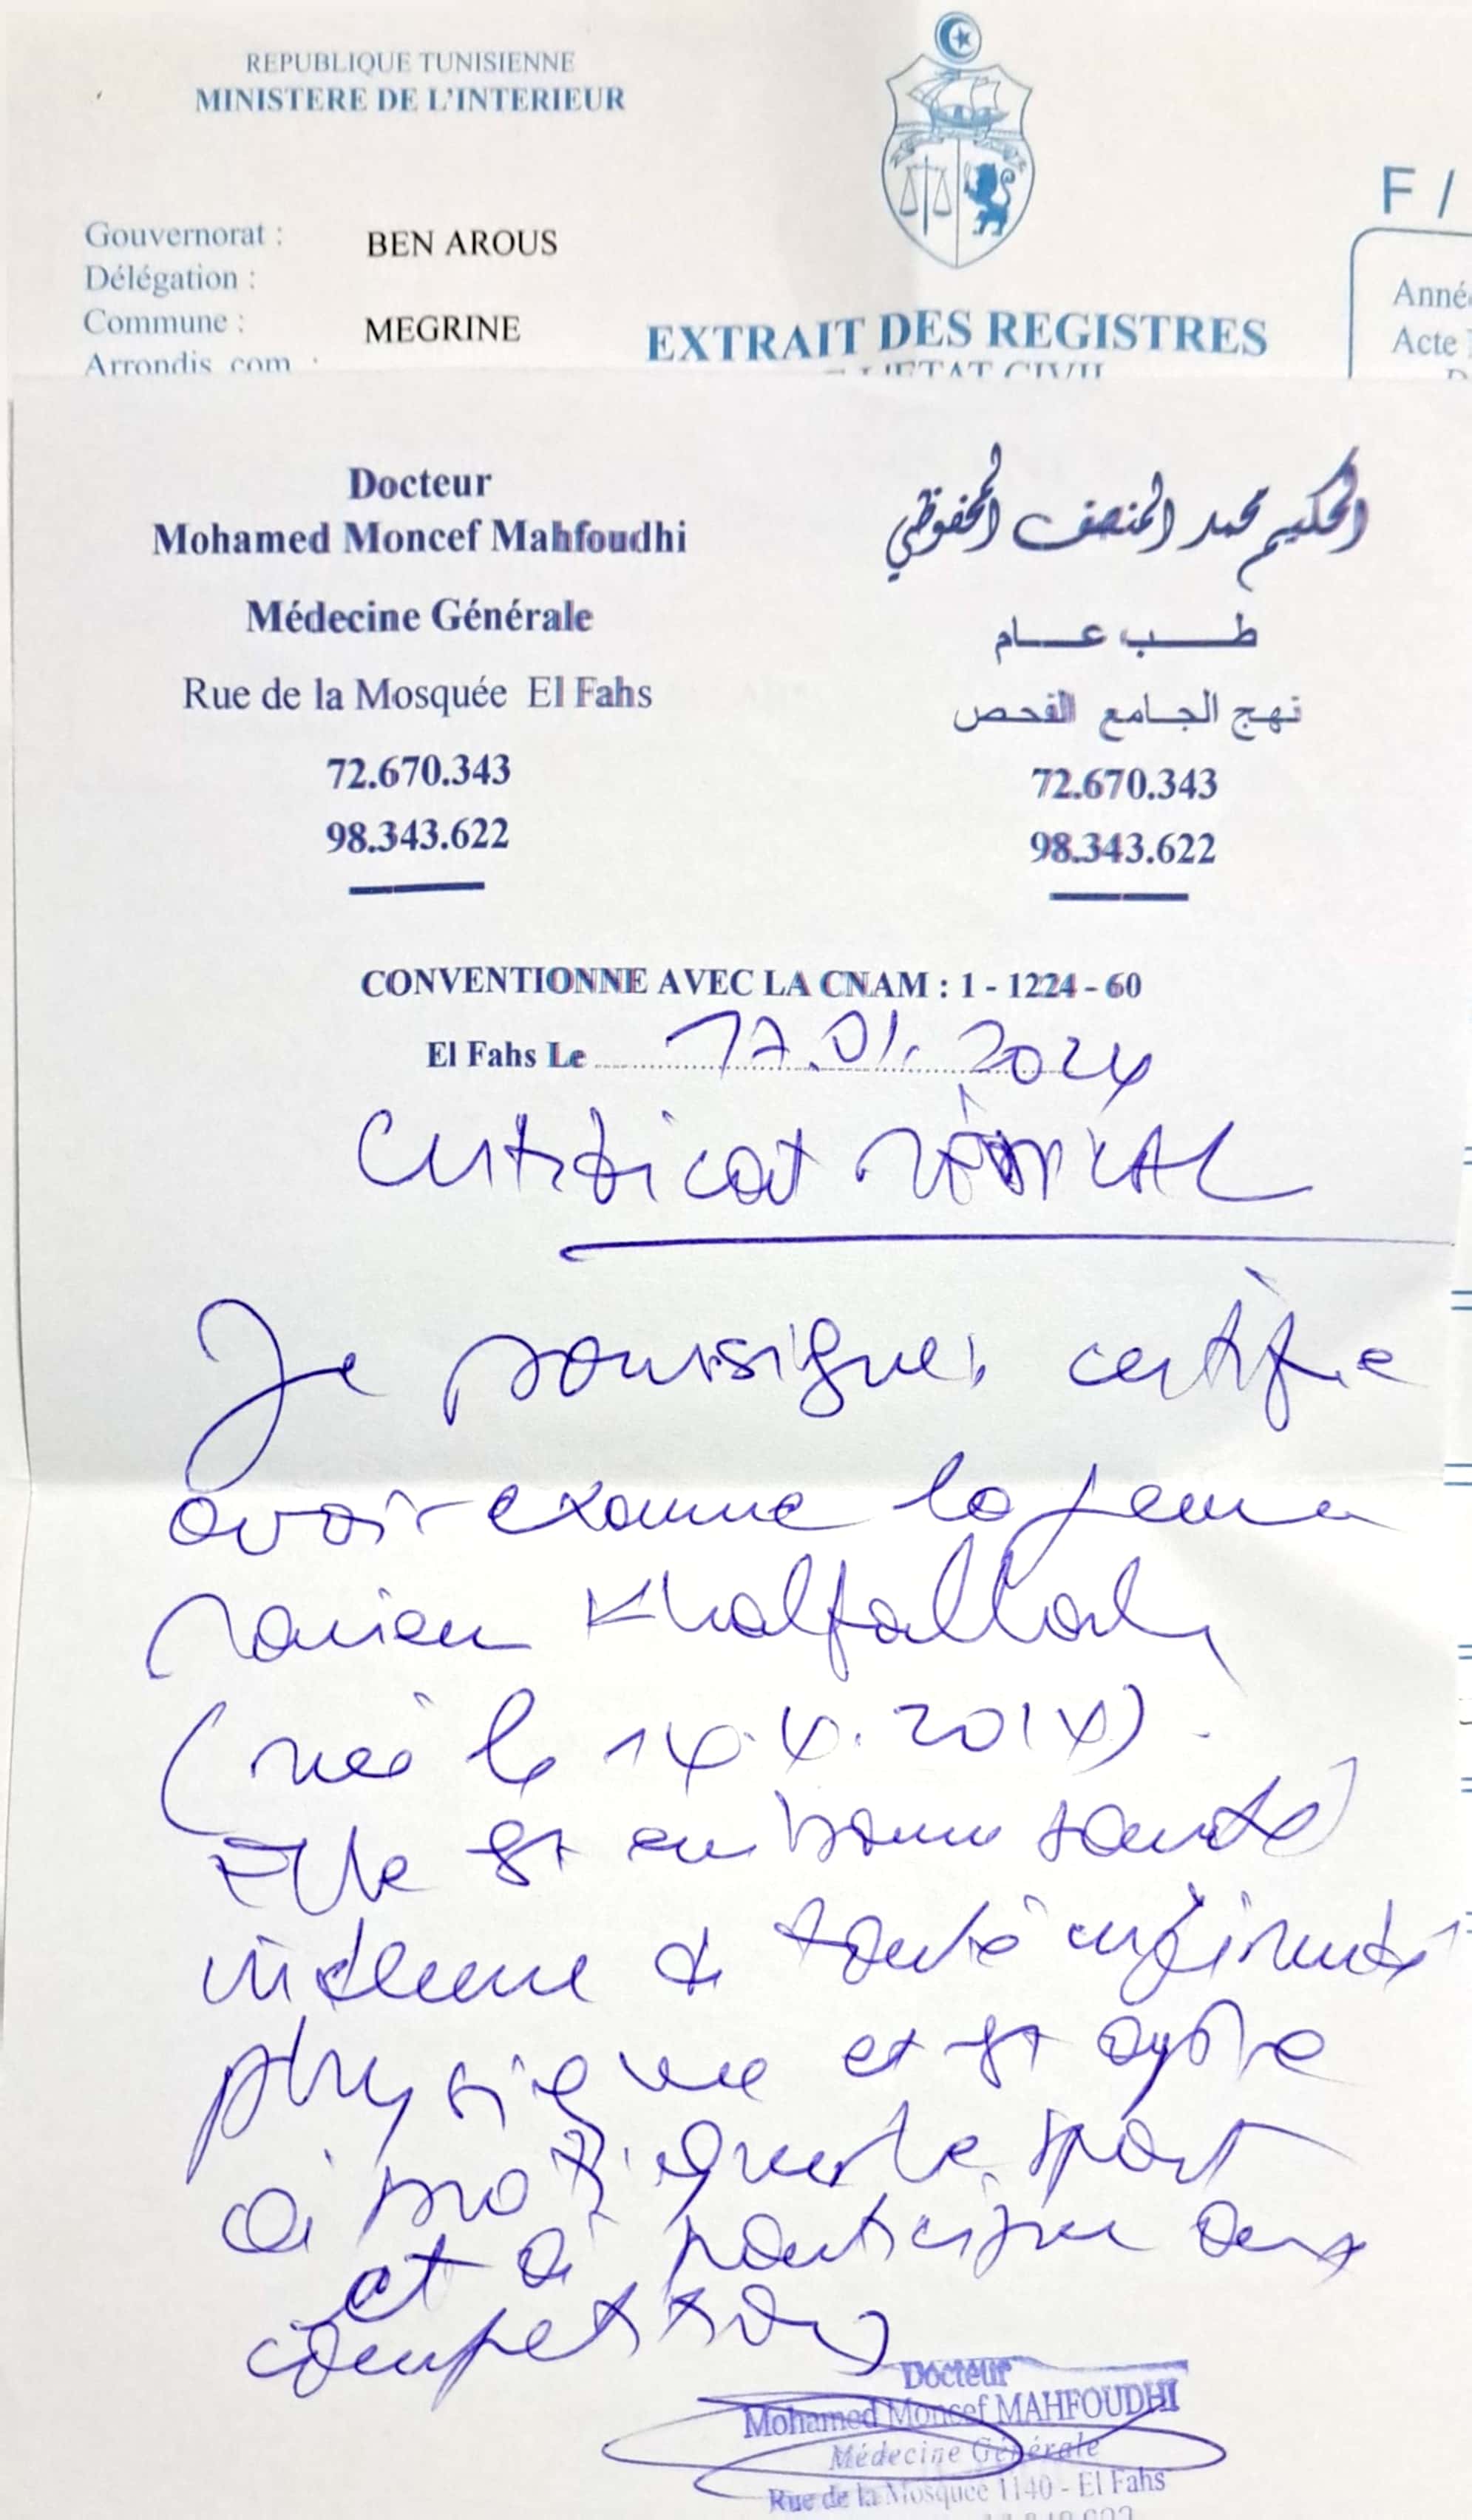 REPUBLIQUE TUNISIENNE
MINISTERE DE L'INTERIEUR
F /
Gouvernorat : BEN AROUS
Délégation :
Commune : MEGRINE
Arrondis. com
EXTRAIT DES REGISTRES
L'ETAT CIVIL
Anné
Acte
Docteur
Mohamed Moncef Mahfoudhi
Médecine Générale
Rue de la Mosquée El Fahs
72.670.343
98.343.622
الحكيم محمد المنصف المحفوظي
طب عام
نهج الجامع الفحص
72.670.343
98.343.622
CONVENTIONNE AVEC LA CNAM : 1 - 1224 - 60
El Fahs Le 17.01.2024
Certificat MÉDICAL
Je soussigné certifie
avoir examiné la jeune
Khalfallah
(née le 14.4.2014).
Elle est en bonne santé
indemne de toute infirmité
physique et est apte
à pratiquer le sport
et à participer aux
compétitions
Docteur
Mohamed Moncef MAHFOUDHI
Médecine Générale
Rue de la Mosquée 1140 - El Fahs